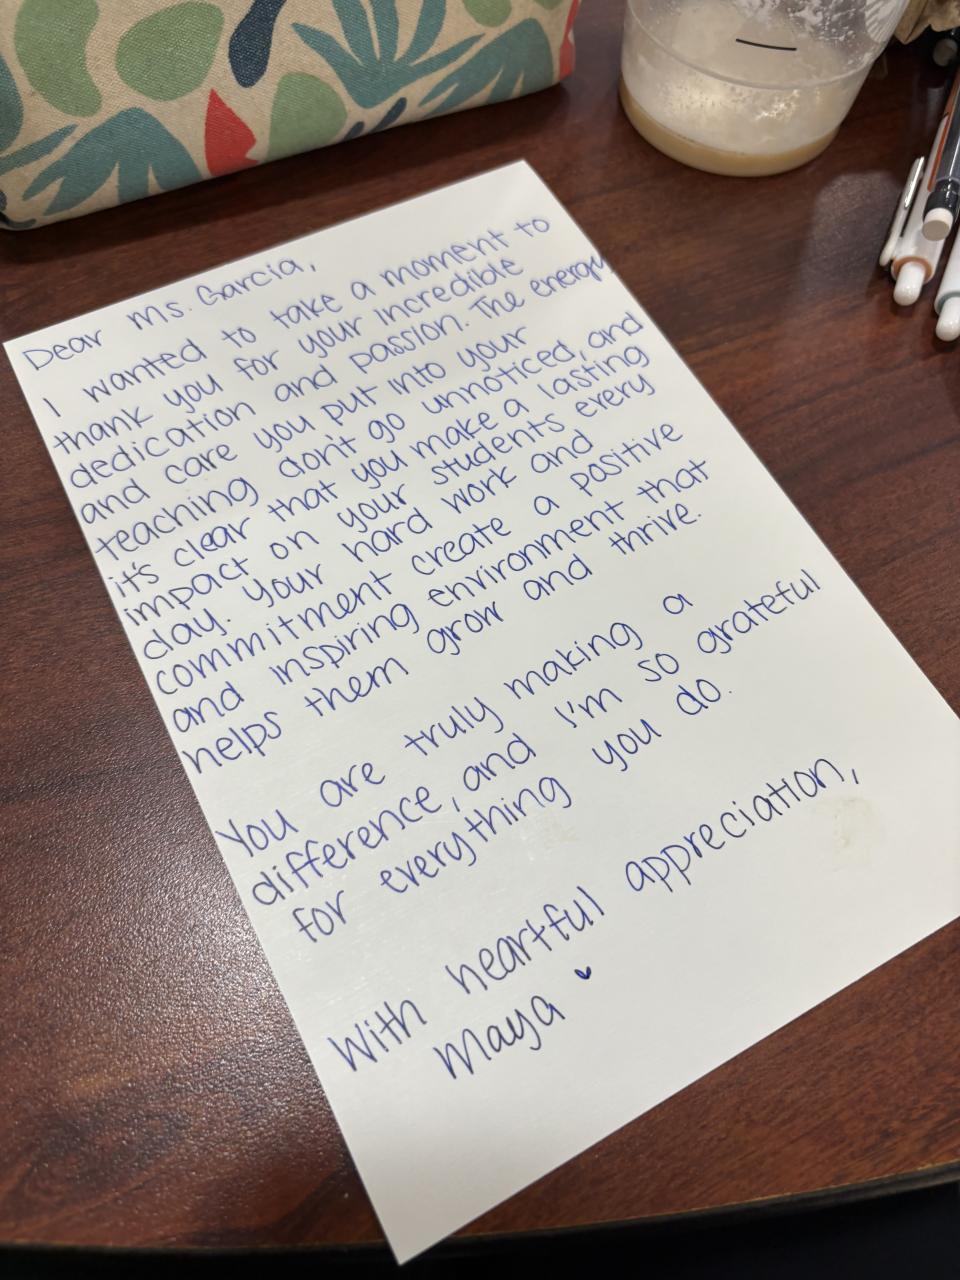 Dear Ms. Garcia,
I wanted to take a moment to
thank you for your incredible
dedication and passion. The energy
and care you put into your
teaching don't go unnoticed, and
it's clear that you make a lasting
impact on your students every
day. Your hard work and
commitment create a positive
and inspiring environment that
helps them grow and thrive.
You are truly making a
difference, and I'm so grateful
for everything you do.
With heartful appreciation,
Maya